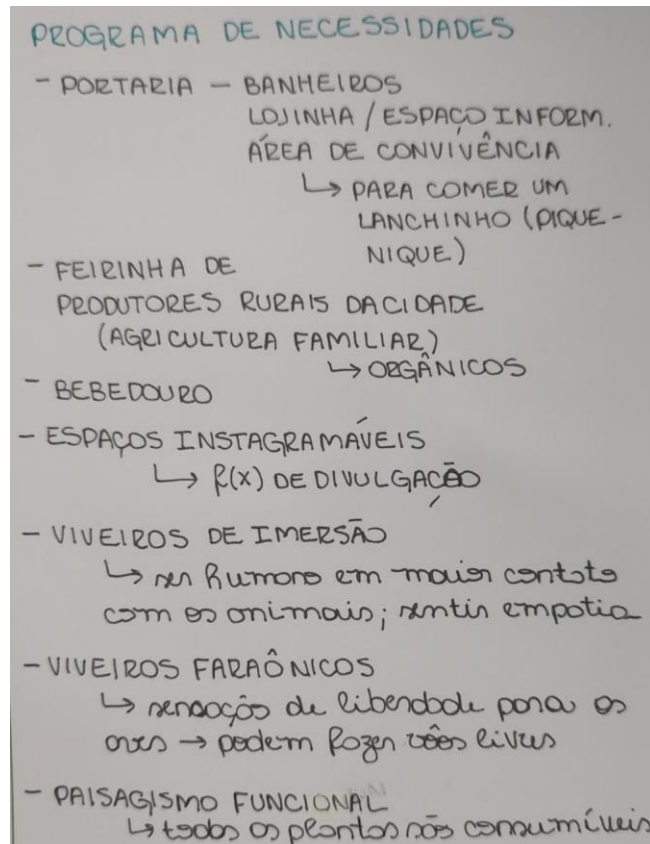 PROGRAMA DE NECESSIDADES
- PORTARIA – BANHEIROS
LOJINHA / ESPAÇO INFORM.
ÁREA DE CONVIVÊNCIA
↳ PARA COMER UM
LANCHINHO (PIQUE-
NIQUE)
- FEIRINHA DE
PRODUTORES RURAIS DA CIDADE
(AGRICULTURA FAMILIAR)
↳ ORGÂNICOS
- BEBEDOURO
- ESPAÇOS INSTAGRAMÁVEIS
↳ f(x) DE DIVULGAÇÃO
- VIVEIROS DE IMERSÃO
↳ ser humano em maior contato
com os animais; sentir empatia
- VIVEIROS FARAÔNICOS
↳ sensação de liberdade para as
aves → podem fazer vôos livres
- PAISAGISMO FUNCIONAL
↳ todas as plantas são consumíveis